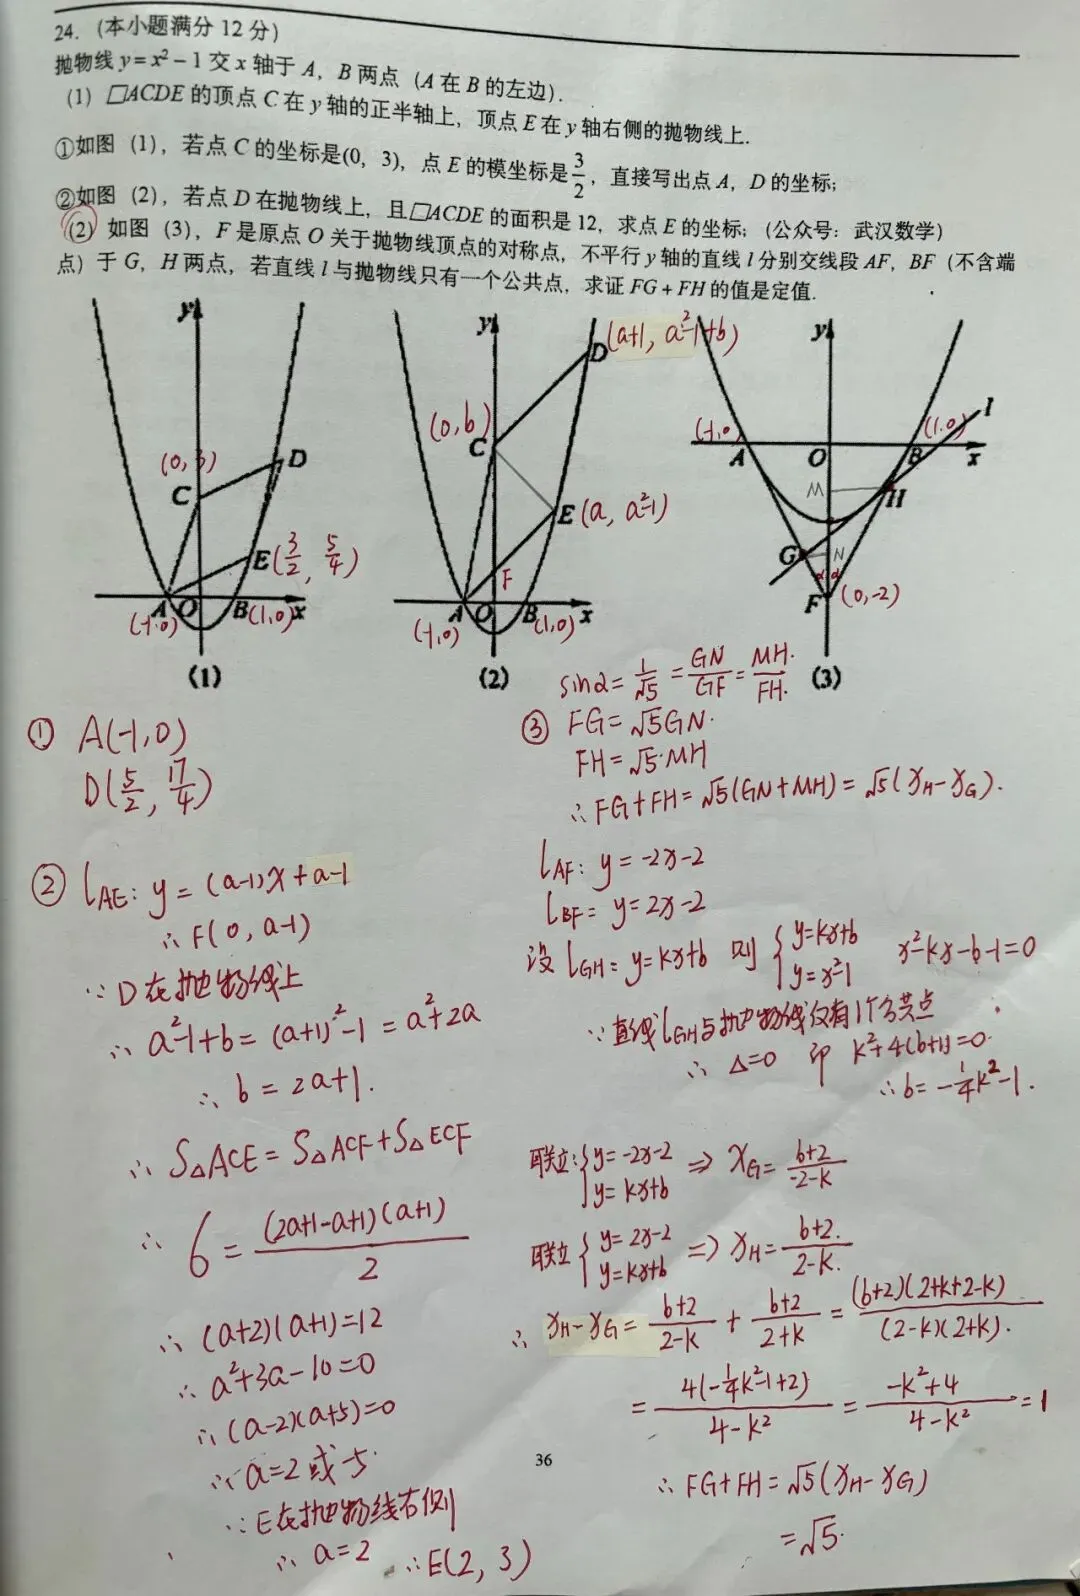 24. (本小题满分 12 分)
抛物线 y=x²−1 交 x 轴于 A, B 两点 (A 在 B 的左边).
(1) □ACDE 的顶点 C 在 y 轴的正半轴上, 顶点 E 在 y 轴右侧的抛物线上.
①如图 (1), 若点 C 的坐标是(0, 3), 点 E 的模坐标是3/2, 直接写出点 A, D 的坐标;
②如图 (2), 若点 D 在抛物线上, 且□ACDE 的面积是 12, 求点 E 的坐标; (公众号: 武汉数学)
(2) 如图 (3), F 是原点 O 关于抛物线顶点的对称点, 不平行 y 轴的直线 l 分别交线段 AF, BF (不含端
点) 于 G, H 两点, 若直线 l 与抛物线只有一个公共点, 求证 FG+FH 的值是定值.
y
(0, 3)
C
D
E(3/2, 5/4)
A
O
B
x
(-1,0)
(1,0)
(1)
y
D(a+1, a²-1+b)
(0,b)
C
E(a, a²-1)
F
A
O
B
x
(-1,0)
(1,0)
(2)
y
l
(-1,0)
(1,0)
A
O
B
x
M
H
G
N
α α
F
(0,-2)
(3)
① A(-1,0)
D(5/2, 17/4)
② lAE: y=(a-1)x+a-1
∴ F(0, a-1)
∵ D在抛物线上
∴ a²-1+b=(a+1)²-1=a²+2a
∴ b=2a+1.
∴ S△ACE=S△ACF+S△ECF
∴ 6=(2a+1-a+1)(a+1)/2
∴ (a+2)(a+1)=12
∴ a²+3a-10=0
∴ (a-2)(a+5)=0
∴ a=2或-5.
∵ E在抛物线右侧
∴ a=2 ∴E(2, 3)
sinα=1/√5=GN/GF=MH/FH.
③ FG=√5GN.
FH=√5·MH
∴ FG+FH=√5(GN+MH)=√5(xH-xG).
lAF: y=-2x-2
lBF= y=2x-2
设lGH= y=kx+b 则 {y=kx+b y=x²-1 x²-kx-b-1=0
∵ 直线lGH与抛物线仅有1个公共点
∴ △=0 即 k²+4(b+1)=0.
∴ b=-1/4k²-1.
联立:{y=-2x-2 y=kx+b ⇒ xG=b+2/-2-k
联立{y=2x-2 y=kx+b ⇒ xH=b+2/2-k.
∴ xH-xG=b+2/2-k+b+2/2+k=(b+2)(2+k+2-k)/(2-k)(2+k).
=4(-1/4k²-1+2)/4-k²=-k²+4/4-k²=1
∴ FG+FH=√5(xH-xG)
=√5.
36